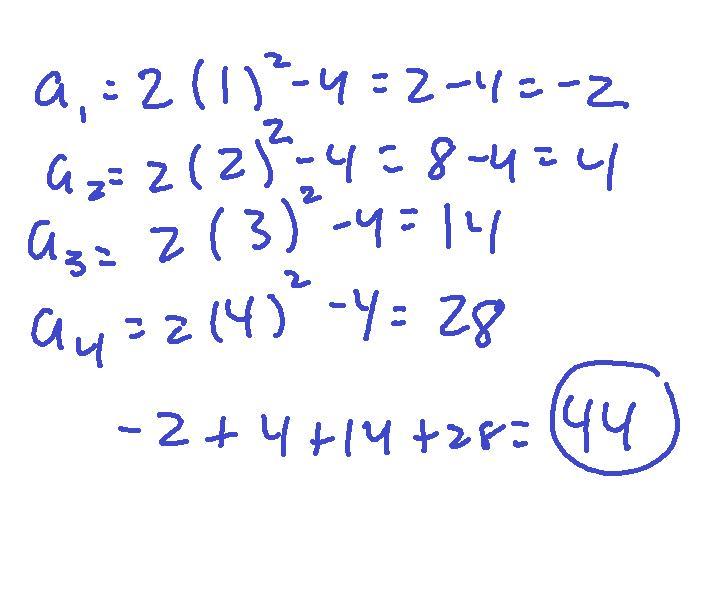 a₁ = 2(1)² - 4 = 2 - 4 = -2
a₂ = 2(2)² - 4 = 8 - 4 = 4
a₃ = 2(3)² - 4 = 14
a₄ = 2(4)² - 4 = 28
-2 + 4 + 14 + 28 = 44